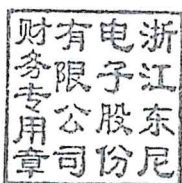 浙江东尼
电子股份
有限公司
财务专用章